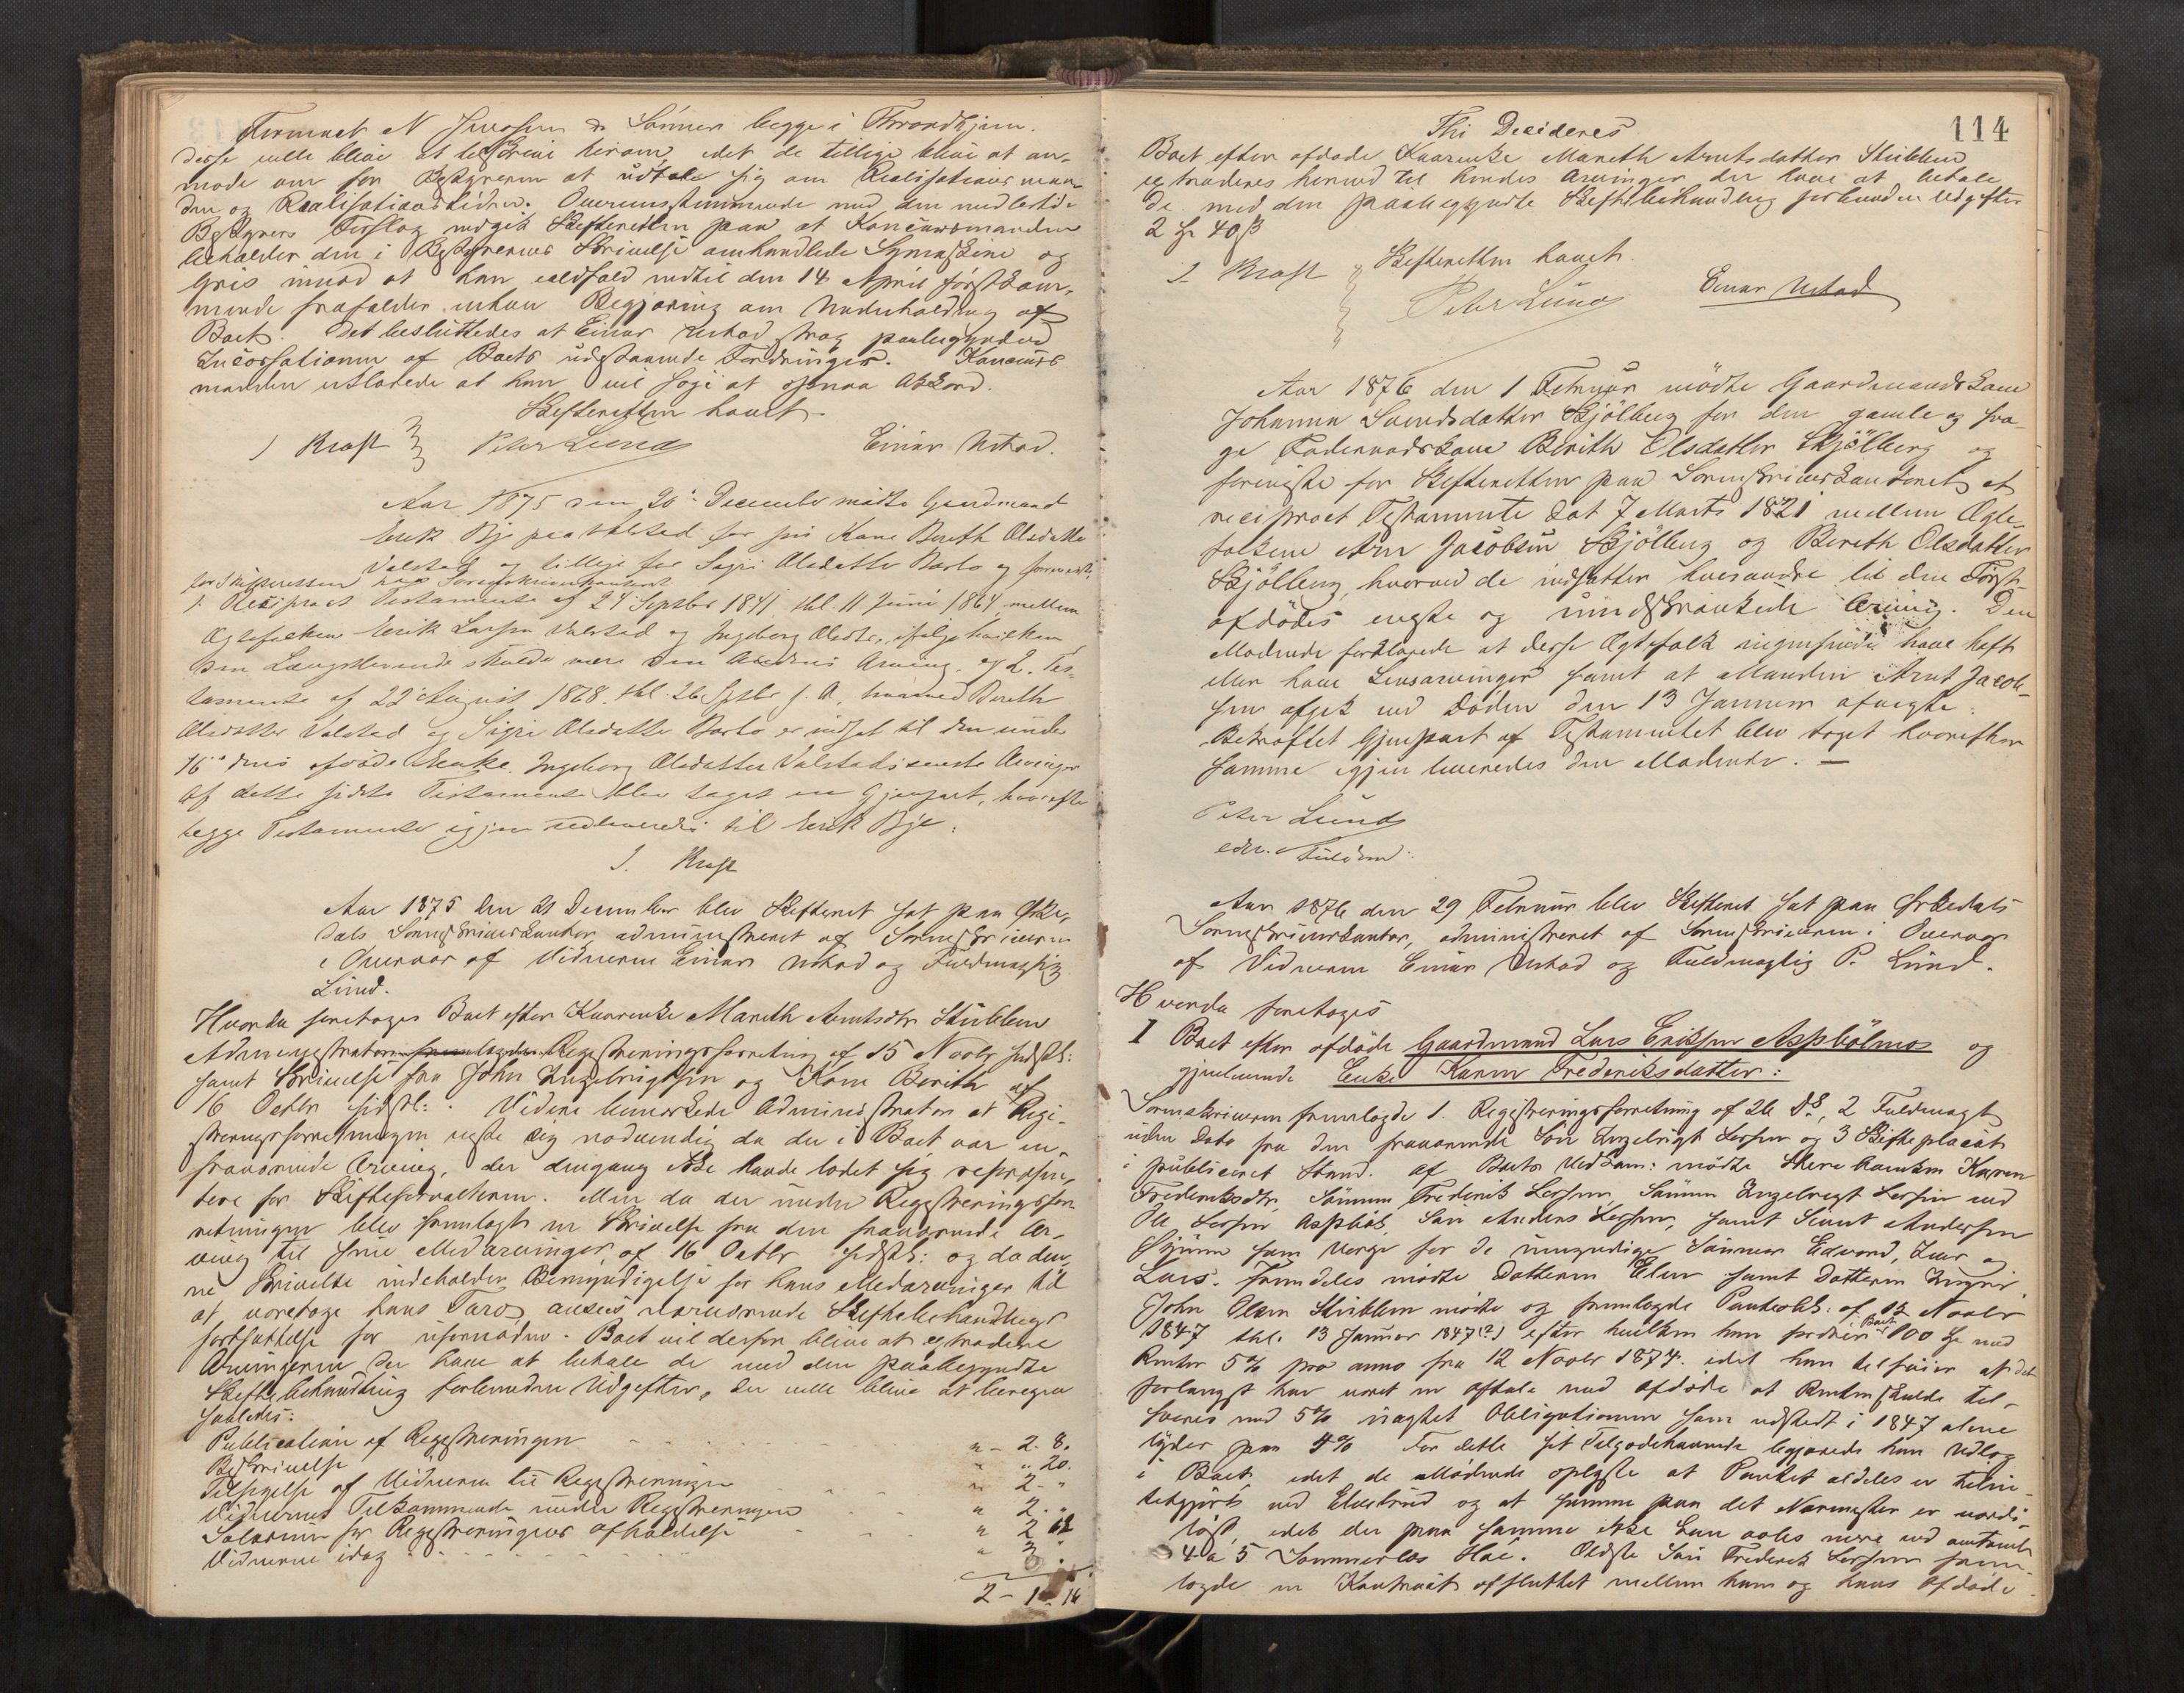 Firmaet N Jenssen & Sönner begge i Throndhjem.
disse ville blive at tilskrive herom, idet de tillige blive at an-
mode om for Bestyreren at udtale sig om Realisationsmaa-
den og Realisationstiden. Overensstemmende med den midlertidige
Bestyrers Forslag indgik Skifteretten paa at Concursmanden
beholder den i Bestyrerens Skrivelse omhandlede Symaskine og
Gris imod at han ialdfald indtil den 14 April förstkom-
mende frafalder enhver Begjæring om Underholdning af
Boet. Det besluttedes at Einar Ustad strax paabegynder
Incassationen af Boets udestaaende Fordringer. Concurs
manden erklærede at han vil söge at opnaa Akkord.
Skifteretten hævet.
J Krost Peter Lund Einar Ustad.
Aar 1875 den 20de December mödte Gaardmand
Erik Bye paa Valstad for sin Kone Bereth Olsdatter
Valstad og tillige for Sigri Olsdatter Borto og foreviste
for Skifteretten paa Sorenskriverkontoret
1. Reciproct Testamente af 24 Septbr 1841 thl. 11 Juni 1864 mellem
Ægtefolkene Erik Larsen Valstad og Ingeborg Olsdtr., ifölge hvilken
den Længstlevende skulde være den Andens Arving, og 2. Tes-
tamente af 22 August 1868. thl. 26 Septbr s. A. hvorved Bereth
Olsdatter Valstad og Sigri Olsdatter Borto er indsat til den under
16de dns afdöde Enke Ingeborg Olsdatter Valstads eneste Arvinger
Af dette sidste Testamente blev taget en Gjenpart, hvorefter
begge Testamenter igjen udleveredes til Erik Bye.
J. Krost
Aar 1875 den 21 December blev Skifteret sat paa Orke-
dals Sorenskriverkontor, administreret af Sorenskriveren
i Overvær af Vidnerne Einar Ustad og Fuldmægtig
Lund.
Hvorda foretoges Boet efter Kaarenke Mareth Arntsdtr Stubben
Administrator Registreringsforretning af 15 Novbr sidstl:
samt Skrivelse fra John Ingebrigtsen og Kone Berith af
16 Octbr sidstl:. Videre bemærkede Administrator at Regi-
streringsforretningen viste sig nødvendig da der i Boet var en
fraværende Arving, der dengang ikke havde ladet sig repræsen-
tere for Skifteforvalteren. Men da der under Registreringsfor
retningen blev fremlagt en Skrivelse fra den fraværende Ar-
ving til sine Medarvinger af 16 Octbr sidstl: og da den-
ne Skrivelse indeholder Bemyndigelse for hans Medarvinger til
at varetage hans Tarv, ansees nærværende Skiftebehandlings
fortsættelse for ufornöden. Boet vil derfor blive at extradere
Arvingerne der have at betale de med den paabegyndte
Skiftebehandling forbundne Udgifter, der ville blive at beregne
saaledes:
Publication af Registreringen " - 2. 8.
Beskrivelse " " 20.
Tilsigelse af Vidnerne til Registreringen " 2. "
Vidnernes Tilkommende under Registreringen " 2. "
Salarium for Registreringens afholdelse " 2 12
Vidnerne idag " 3 .
2 - 1 - 16
114
Thi Decideres
Boet efter afdöde Kaarenke Mareth Arntsdatter Stubben
extraderes herved til hendes Arvinger der have at betale
de med den paabegyndte Skiftebehandling forbundne Udgifter
2 Sp 40 ß
Skifteretten hævet.
J Krost Peter Lund Einar Ustad
Aar 1876 den 1 Februar mödte Gaardmandskone
Johanna Svendsdatter Skjölberg for den gamle og sva-
ge Foderaadskone Berith Olsdatter Skjölberg og
foreviste for Skifteretten paa Sorenskriverkontoret et
reciproct Testamente dat 7 Marts 1821 mellem Ægte-
folkene Arn Jacobsen Skjölberg og Bereth Olsdatter
Skjölberg, hvorved de indsætter hverandre til den Först-
afdödes eneste og uindskrænkede Arving. Den
Mødende forklarede at disse Ægtefolk ingensinde have havt
eller have Livsarvinger samt at Manden Arnt Jacob-
sen afgik ved Döden den 13 Januar afvigte.
Bekræftet Gjenpart af Testamentet blev taget hvorefter
samme igjen leveredes den Mødende. —
Peter Lund
edsv. Fuldm:
Aar 1876 den 29 Februar blev Skifteret sat paa Orkedals
Sorenskriverkontor, administreret af Sorenskriveren i Overvær
af Vidnerne Einar Ustad og Fuldmægtig P. Lund.
Hvorda foretoges
I Boet efter afdöde Gaardmand Lars Eriksen Aspbölmo og
gjenlevende Enke Karen Frederiksdatter:
Sorenskriveren fremlagde 1. Registreringsforretning af 26 ds, 2 Fuldmagt
uden Dato fra den fraværende Sön Ingebrigt Larsen og 3 Skifteplacat
i publiceret Stand. Af Boets Vedkom: mödte Skere Enken Karen
Frederiksdtr, Sönnen Frederik Larsen, Sönnen Ingebregt Larsen ved
Ole Larsen Aspböl, Sön Anders Larsen, samt Sivert Andersen
som Verge for de umyndige Sönner Edvard, Iver og
Lars. Fremdeles mödte Datteren Elen samt Datteren Ingri
John Olsen Stubben mödte og fremlagde Panteobl: af 12 Novbr
1847 thl. 13 Januar 1847(?) efter hvilken han fordrer i Boet 100 Sp med
Renter 5% pro anno fra 12 Novbr 1874. idet han tilföier at det
forlængst har været en Aftale med afdöde at Renten skulde til-
svares med 5% uagtet Obligationen som udstedt i 1847 alene
lyder paa 4% For dette sit Tilgodehavende begjærede han Udlæg
i Boet idet de Mødende oplyste at Pantet aldeles er tilin-
tetgjort ved Elvebrud og at samme paa det Nærmeste er værdi-
löst, idet der paa samme ikke kan avles mere end omtrent
4 a 5 Sommerlæs Höe. Ældste Sön Frederik Larsen frem-
lagde en Kontract afsluttet mellem ham og hans afdöde